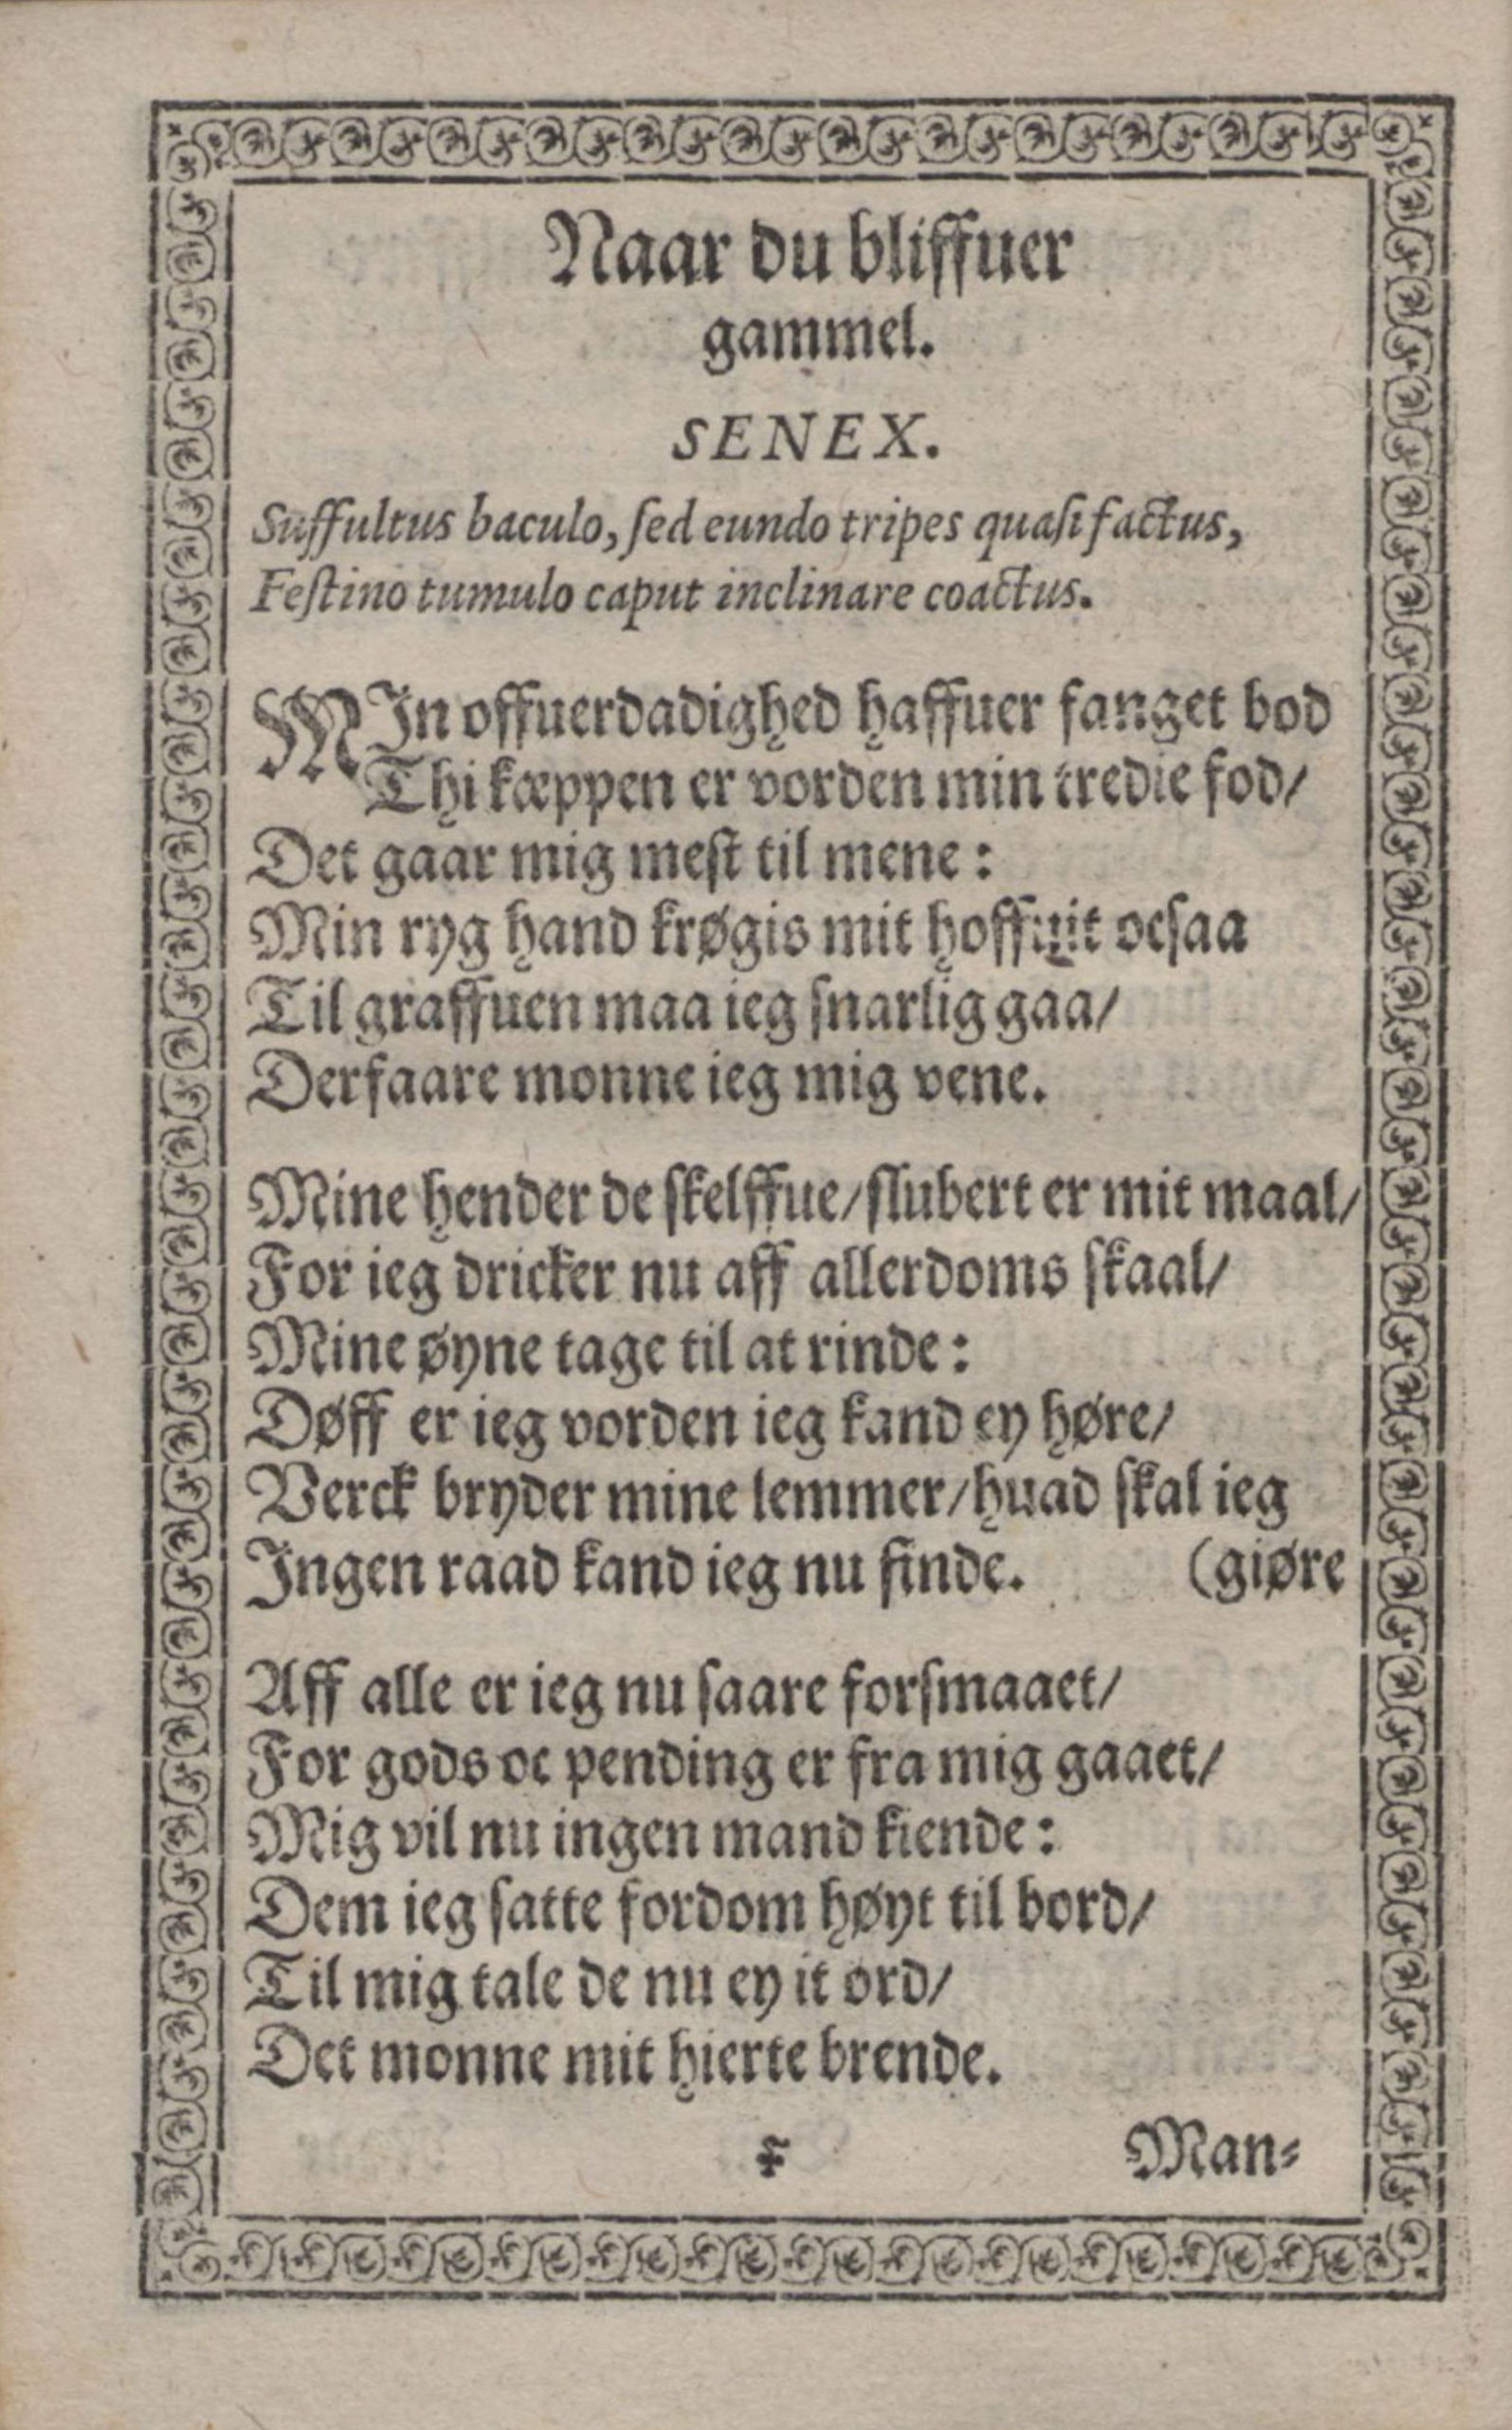 Naar du bliffuer
gammel.
SENEX.
Suffultus baculo, ſed eundo tripes quaſi factus,
Feſtino tumulo caput inclinare coactus.
MIn offuerdadighed haffuer fanget bod
Thi kæppen er vorden min tredie fod/
Det gaar mig meſt til mene:
Min ryg hand krøgis mit hoffuit ocſaa
Til graffuen maa ieg ſnarlig gaa/
Derfaare monne ieg mig vene.
Mine hender de ſkelffue/ſlubert er mit maal/
For ieg dricker nu aff allerdoms ſkaal/
Mine øyne tage til at rinde:
Døff er ieg vorden ieg kand ey høre/
Verck bryder mine lemmer/huad ſkal ieg
Ingen raad kand ieg nu finde. (giøre
Aff alle er ieg nu ſaare forſmaaet/
For gods oc pending er fra mig gaaet/
Mig vil nu ingen mand kiende:
Dem ieg ſatte fordom høyt til bord/
Til mig tale de nu ey it ord/
Det monne mit hierte brende.
Man⸗